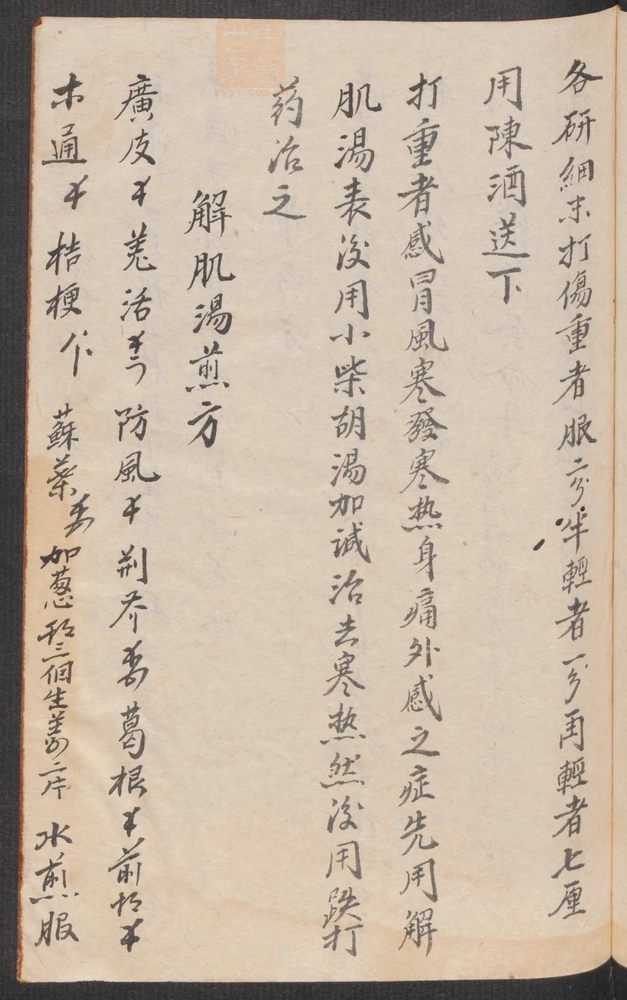 各研細末打傷重者服二分半輕者一分再輕者七厘
用陳酒送下
打重者感冒風寒發寒热身痛外感之症先用解
肌湯表後用小柴胡湯加減治去寒熱然後用跌打
药治之
解肌湯煎方
廣皮 羗活 防風 荆芥 葛根 前胡
木通 桔梗 蘇葉 加葱頭三個生姜二片 水煎服